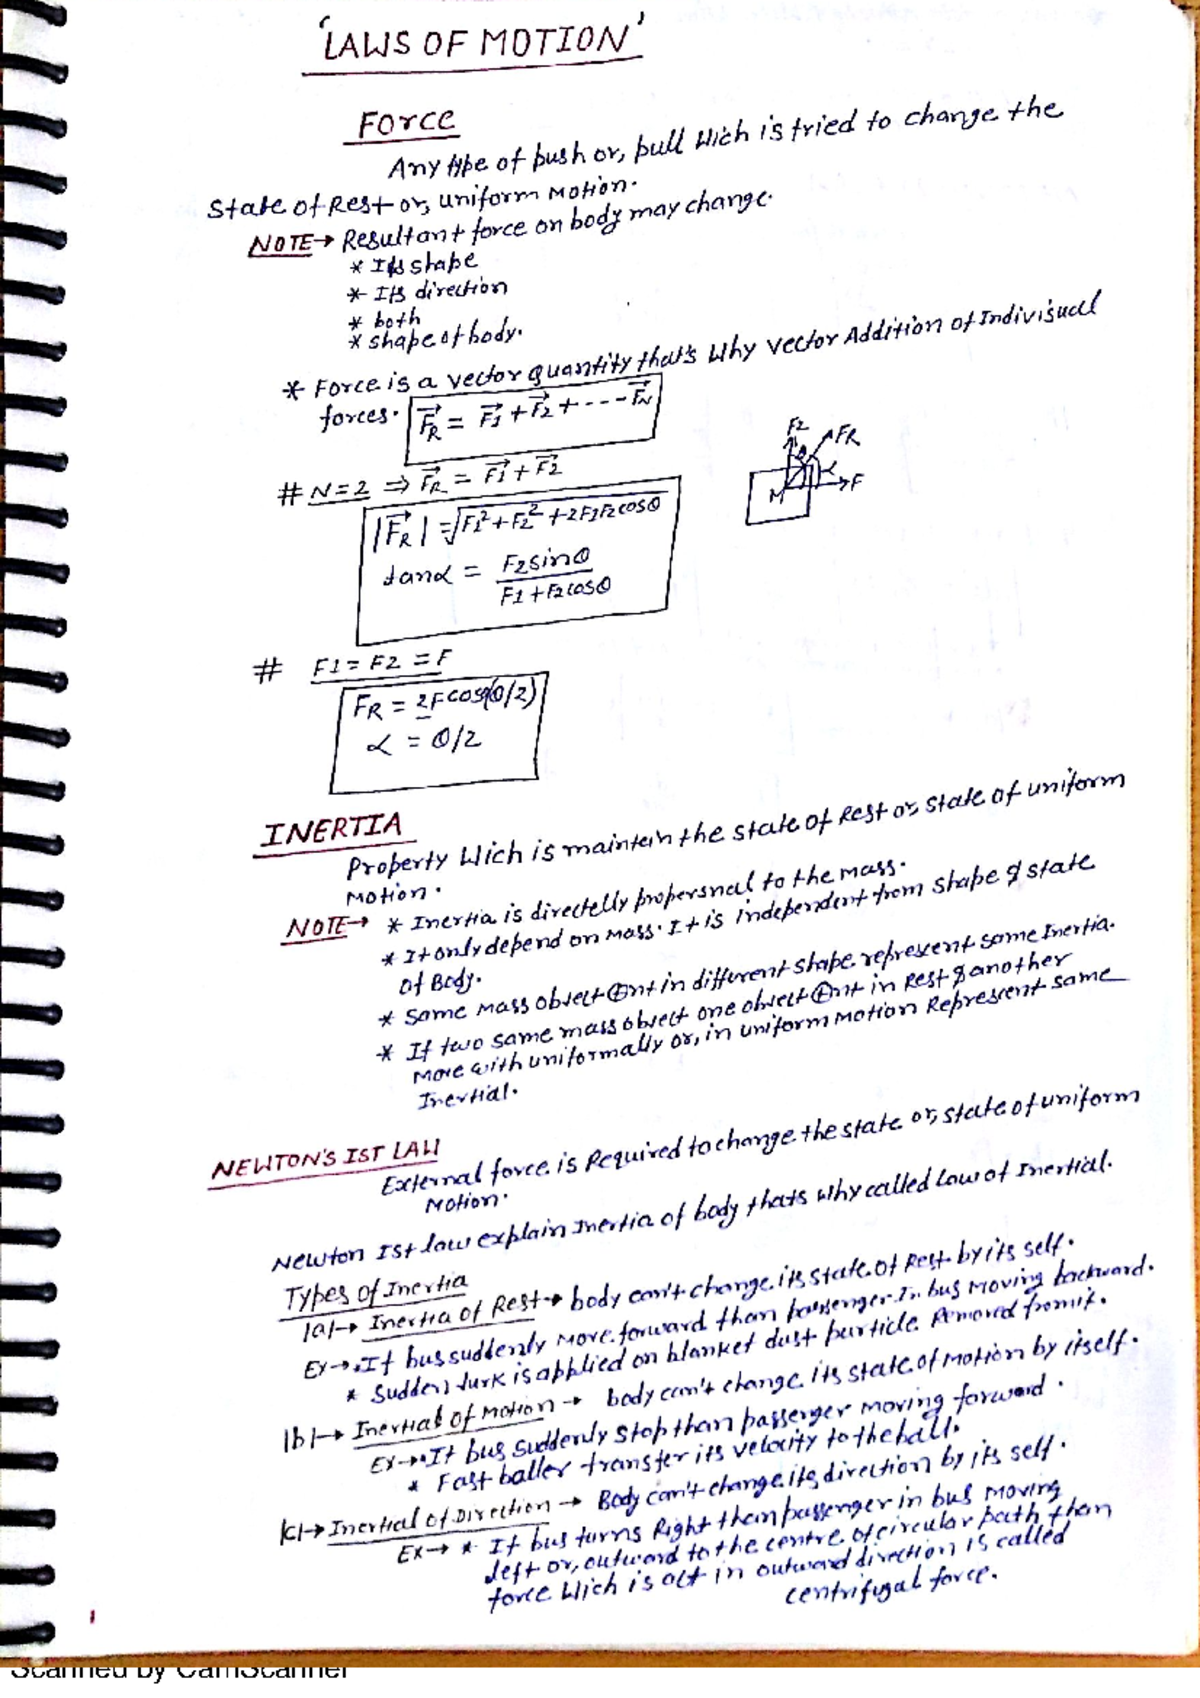 'LAWS OF MOTION'
Force
Any type of push or, pull Wich is tried to change the
State of Rest or, uniform Motion.
NOTE→ Resultant force on body may change.
* Its stape
* Its direction
* both
* shape of body.
* Force is a vector quantity that's Why vector Addition of Indivisuall
forces. F⃗R = F⃗1 + F⃗2 + ---- F⃗N
# N=2 ⇒ F⃗R = F⃗1 + F⃗2
|F⃗R| = √F1² + F2² + 2F1F2cosθ
tanα = F2sinθ / F1 + F2cosθ
F2
FR
α
M
F
# F1 = F2 = F
FR = 2Fcos(θ/2)
α = θ/2
INERTIA
Property Wich is maintein the state of Rest or, state of uniform
Motion.
NOTE→ * Inertia is directelly propersnal to the mass.
* It only depend on Mass. It is independent from shape & state
of Body.
* Same mass object in different shape represent same Inertia.
* If two same mass object one object in Rest & another
move with uniformally or, in uniform Motion Represent same
Inertial.
NEWTON'S IST LAW
External force is Required to change the state or, state of uniform
Motion.
Newton Ist law explain Inertia of body thats Why called Law of Inertial.
Types of Inertia
|a|→ Inertia of Rest→ body can't change its state of Rest by its self.
Ex→ If bus suddenly move forward than passenger In bus moving backward.
* Sudden Jurk is applied on blanket dust particle Removed from it.
|b|→ Inertial of Motion → body can't change its state of Motion by itself.
Ex→ If bus suddenly stop than passenger moving forward.
* Fast baller transfer its velocity to the ball.
|c|→ Inertial of Direction → Body can't change its direction by its self.
Ex→ * If bus turns Right than passenger in bus moving
left or, outward to the centre of circular path than
force Wich is act in outward direction is called
centrifugal force.
1
Scanned by CamScanner